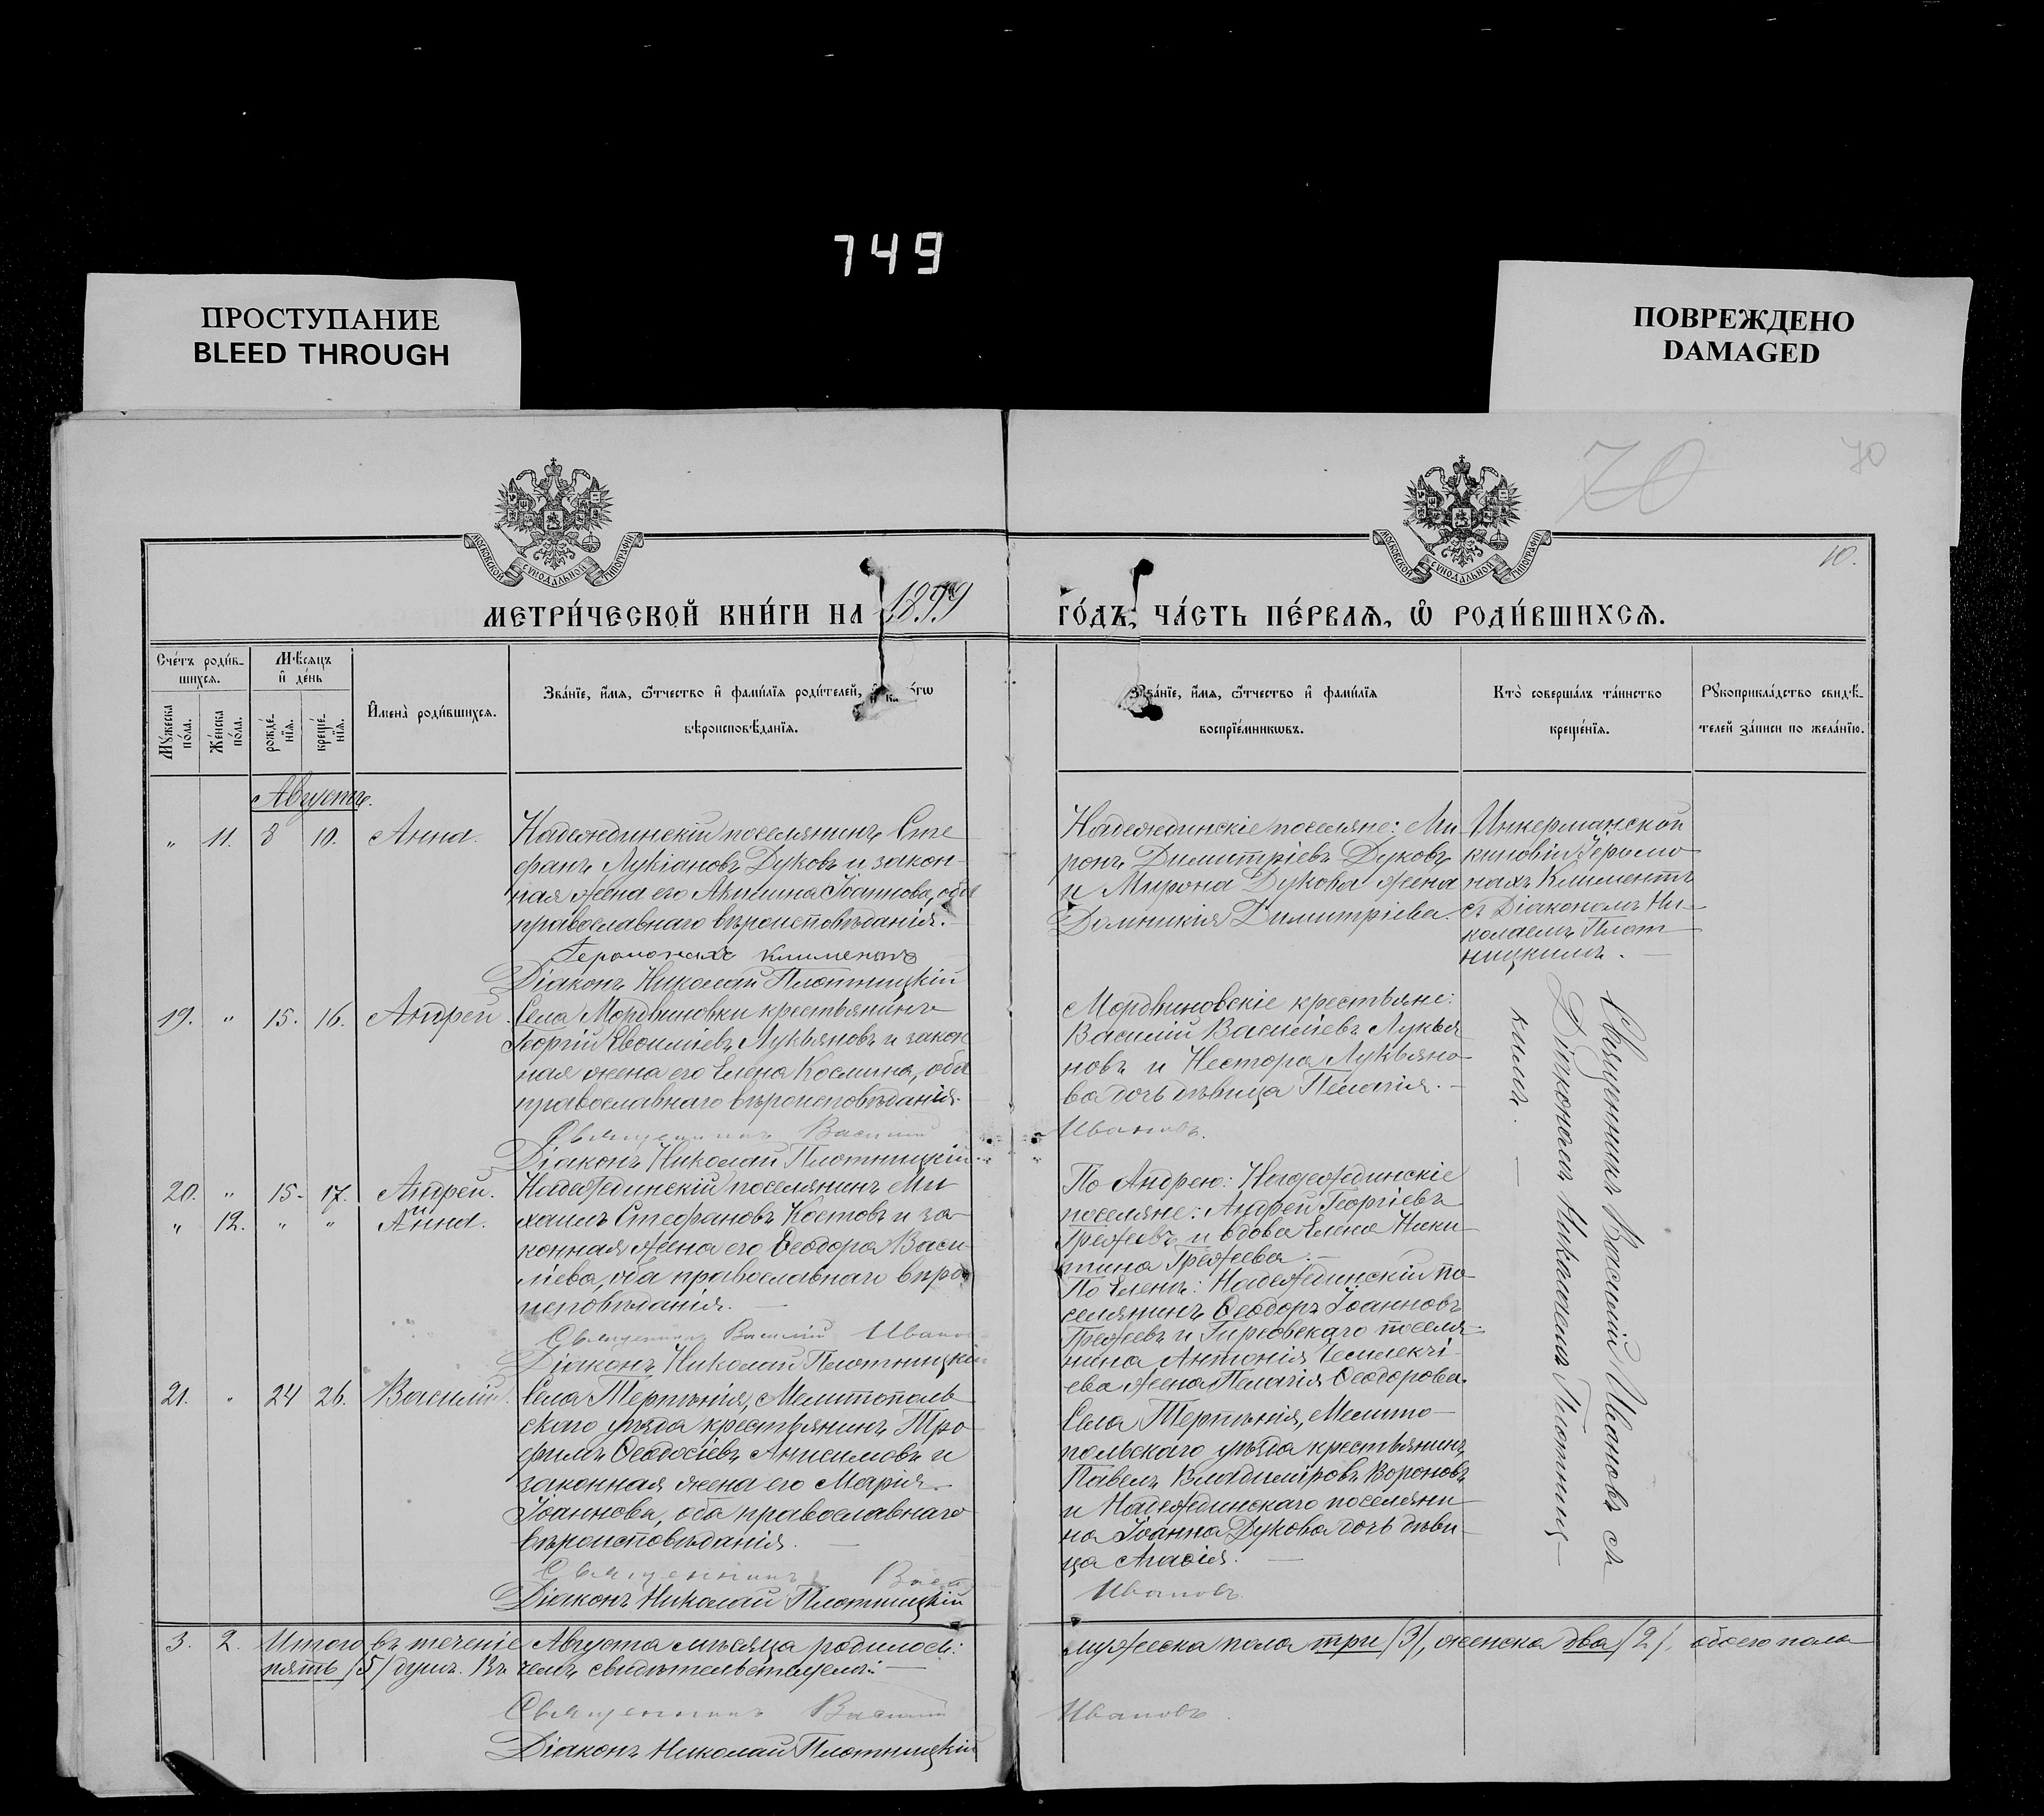 749
ПРОСТУПАНИЕ
BLEED THROUGH
ПОВРЕЖДЕНО
DAMAGED
70
70
10.
МОСКОВСКОЙ СѴНОДАЛЬНОЙ ТИПОГРАФІИ
МОСКОВСКОЙ СѴНОДАЛЬНОЙ ТИПОГРАФІИ
МЕТРИ́ЧЕСКОЙ КНИ́ГИ НА 1899
ГО́ДЪ, ЧА́СТЬ ПЕ́РВАѦ, Ѡ҆ РОДИ́ВШИХСѦ.
Сче́тъ роди́в-
шихсѧ.
Мѣ́сѧцъ
и҆ де́нь
Мꙋ́жеска по́ла.
Же́нска по́ла.
рожде́-
нїѧ.
креще́-
нїѧ.
И҆мена̀ роди́вшихсѧ.
Зва́нїе, и҆́мѧ, ѻ҆́тчество и҆ фами́лїѧ роди́телей,
вѣроисповѣ́данїѧ.
Зва́нїе, и҆́мѧ, ѻ҆́тчество и҆ фами́лїѧ
воспрїе́мникѡвъ.
Кто̀ соверша́лъ та́инство
креще́нїѧ.
Рꙋкоприкла́дство свидѣ́-
телей за́писи по жела́нїю.
Августъ.
„ 11. 8 10. Анна.
Надеждинскій поселянинъ Сте
фанъ Лукіановъ Дуковъ и закон-
ная жена его Акилина Іоаннова, оба
православнаго вѣроисповѣданія. —
Іеромонахъ Климентъ
Діаконъ Николай Плотницкій
Надеждинскіе поселяне: Ми
ронъ Димитріевъ Дуковъ
и Мирона Дукова жена
Домникія Димитріева.
Инкерманской
киновіи Іеромо
нахъ Климентъ
съ Діакономъ Ни-
колаемъ Плот
ницкимъ. —
19. „ 15. 16. Андрей.
Села Мордвиновки крестьянинъ
Георгій Евфиміевъ Лукьяновъ и закон
ная жена его Елена Космина, оба
православнаго вѣроисповѣданія.
Священникъ Василій
Діаконъ Николай Плотницкій
Мордвиновскіе крестьяне:
Василій Васильевъ Лукья
новъ и Нестора Лукьяно-
ва дочь дѣвица Пелагія. —
Ивановъ.
Священникъ Василій Ивановъ съ
Діакономъ Николаемъ Плотниц—
кимъ. —
20. „ 15. 17. Андрей.
„ 12. „ „ Анна.
Надеждинскій поселянинъ Ми
хаилъ Стефановъ Костовъ и за-
конная жена его Ѳеодора Васи-
ліева, оба православнаго вѣро
исповѣданія. —
Священникъ Василій Иванов
Діаконъ Николай Плотницкій
По Андрею: Надеждинскіе
поселяне: Андрей Георгіевъ
Гречевъ и вдова Елена Ники-
тина Гречева. —
По Еленѣ: Надеждинскій по-
селянинъ Ѳеодоръ Іоанновъ
Гречевъ и Гирсовскаго поселя-
нина Антонія Чешмекчі-
ева жена Пелагія Ѳеодорова.
21. „ 24 26. Василій.
Села Терпѣнія, Мелитополь
скаго уѣзда крестьянинъ Тро
фимъ Ѳеодосіевъ Анисимовъ и
законная жена его Марія
Іоаннова, оба православнаго
вѣроисповѣданія. —
Священникъ Васи
Діаконъ Николай Плотницкій
Села Терпѣнія, Мелито—
польскаго уѣзда крестьянинъ
Павелъ Владиміровъ Вороновъ
и Надеждинскаго поселяни—
на Іоанна Дукова дочь дѣви—
ца Агафія. —
Ивановъ.
3. 2. Итого въ теченіе Августа мѣсяца родилось: мужеска пола три /3/, женска два /2/, обоего пола
пять /5/ душъ. Въ чемъ свидѣтельствуемъ: —
Священникъ Василій Ивановъ.
Діаконъ Николай Плотницкій